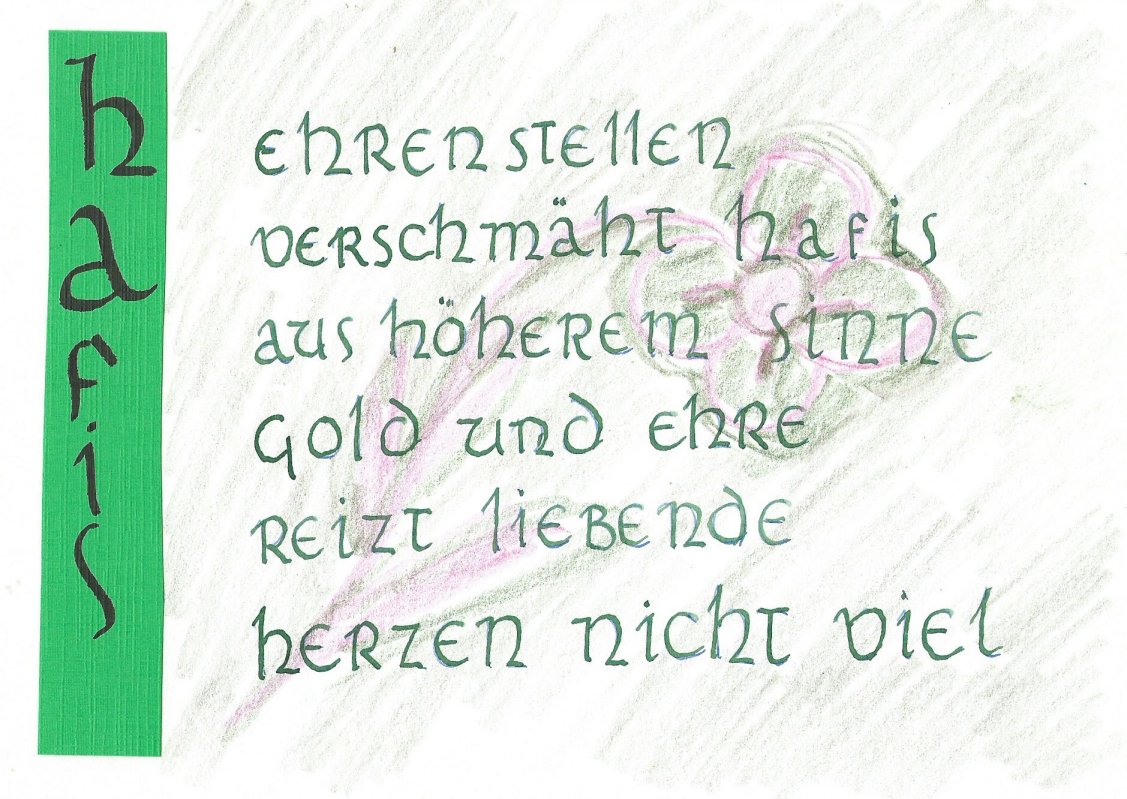 hafis
ehrenstellen
verschmäht hafis
aus höherem sinne
gold und ehre
reizt liebende
herzen nicht viel